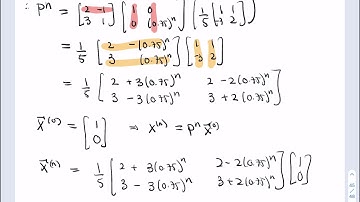 ∴ Pⁿ = [2 -1; 3 1] [1 0; 0 (0.75)ⁿ] (1/5 [1 1; -3 2])
= 1/5 [2 -(0.75)ⁿ; 3 (0.75)ⁿ] [1 1; -3 2]
= 1/5 [2 + 3(0.75)ⁿ 2 - 2(0.75)ⁿ; 3 - 3(0.75)ⁿ 3 + 2(0.75)ⁿ]
x⃗⁽⁰⁾ = [1; 0] ⇒ x⁽ⁿ⁾ = Pⁿ x⃗⁽⁰⁾
x⃗⁽ⁿ⁾ = 1/5 [2 + 3(0.75)ⁿ 2 - 2(0.75)ⁿ; 3 - 3(0.75)ⁿ 3 + 2(0.75)ⁿ] [1; 0]